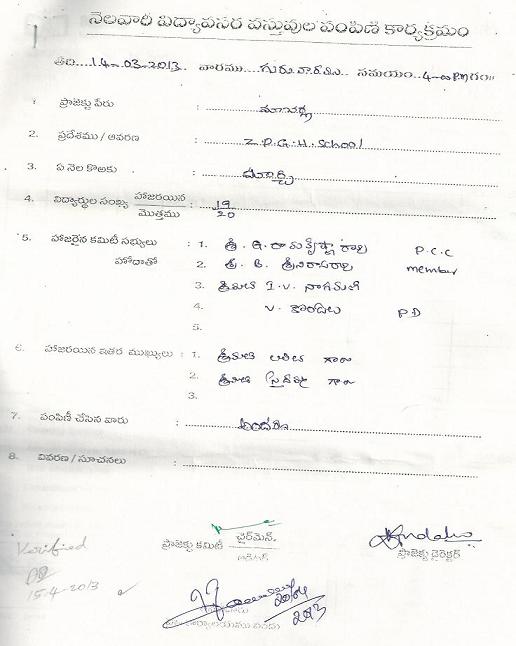 నెలవారి విద్యావసర వస్తువుల పంపిణి కార్యక్రమం
తేది....14-03-2013.. వారము....గురువారము.. సమయం..4-00PMగం॥
1. ప్రాజెక్టు పేరు :
2. ప్రదేశము / ఆవరణ : Z.P.G.H.School
3. ఏ నెల కొఱకు : మార్చి
4. విద్యార్థుల సంఖ్య హాజరయిన : 19
మొత్తము 20
5. హాజరైన కమిటీ సభ్యులు : 1. శ్రీ. రామకృష్ణ రావు P.C.C
హోదాతో 2. శ్రీ. B. శ్రీనివాసరావు member
3. శ్రీమతి I.V. నాగమణి
4. V. కొండలు PD
5.
6. హాజరయిన ఇతర ముఖ్యులు : 1. శ్రీమతి లలిత గారు
2. శ్రీమతి శ్రీదేవి గారు
3.
7. పంపిణీ చేసిన వారు : అందరు
8. వివరణ / సూచనలు :
ప్రాజెక్టు కమిటీ ఛైర్మెన్
ప్రాజెక్టు డైరెక్టర్
Verified
15-4-2013
20/04
2013